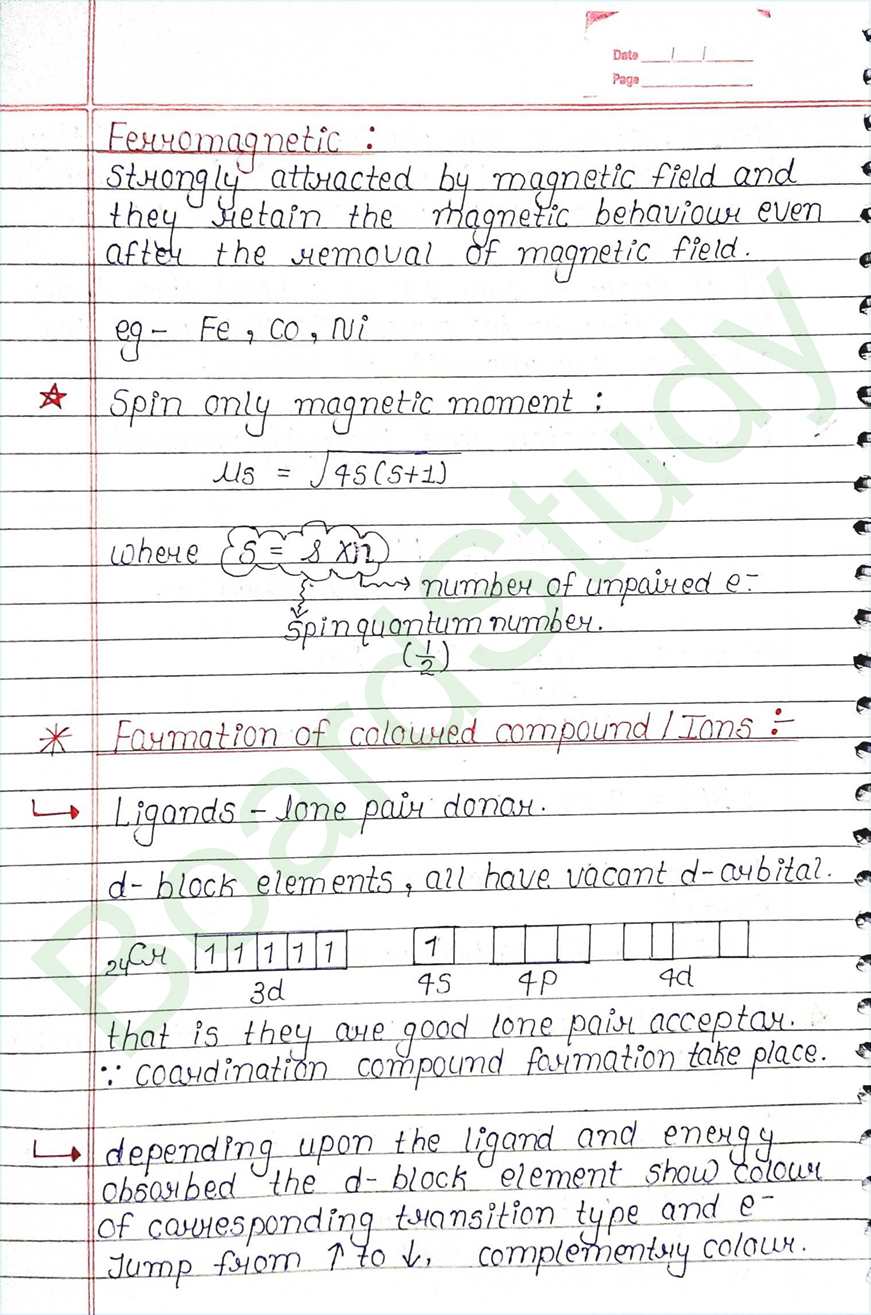 Date __/__/__
Page
Ferromagnetic :
Strongly attracted by magnetic field and
they retain the magnetic behaviour even
after the removal of magnetic field.
eg - Fe, Co, Ni
☆ Spin only magnetic moment :
μs = √4S(S+1)
where S = s × n
→ number of unpaired e⁻
spin quantum number.
(1/2)
* Formation of coloured compound / Ions :-
↳ Ligands - lone pair donar.
d-block elements, all have vacant d-orbital.
₂₄Cr 1 1 1 1 1 1
3d 4s 4p 4d
that is they are good lone pair acceptar.
∵ coordination compound formation take place.
↳ depending upon the ligand and energy
obsorbed the d-block element show colour
of corresponding transition type and e⁻
Jump from ↑ to ↓, complementry colour.
BoardStudy